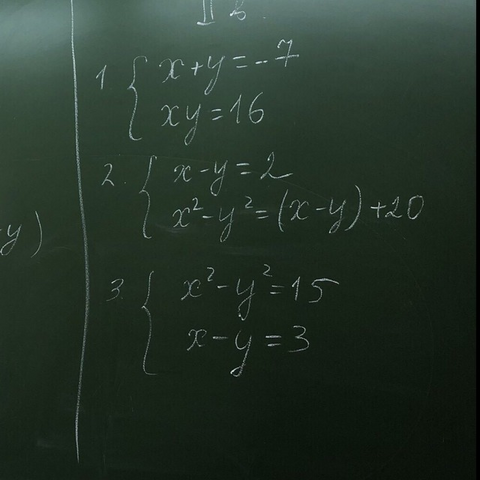 II в.
1 { x+y=-7
xy=16
2. { x-y=2
x²-y²=(x-y)+20
-y)
3. { x²-y²=15
x-y=3